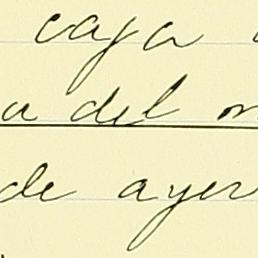 caja
a del
de ayer